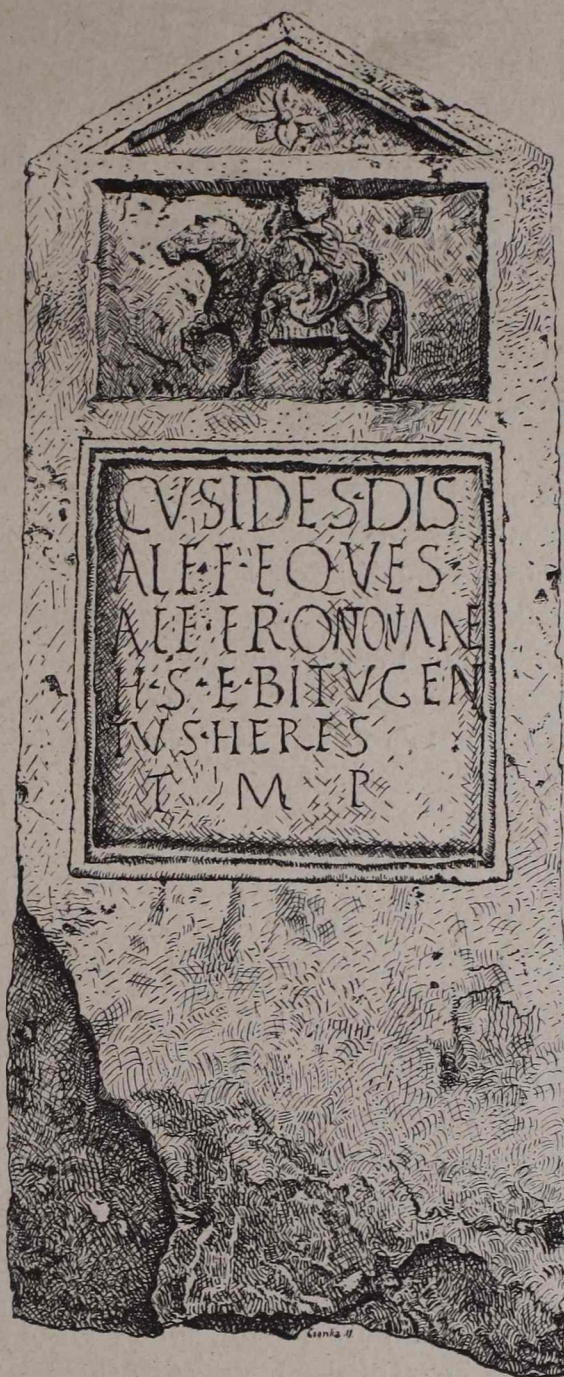 CVSIDES·DIS
ALE·F·EQVES
ALE·FRONTONIANE
H·S·E·BITVGEN
TVS·HERES
T M P
Csonka